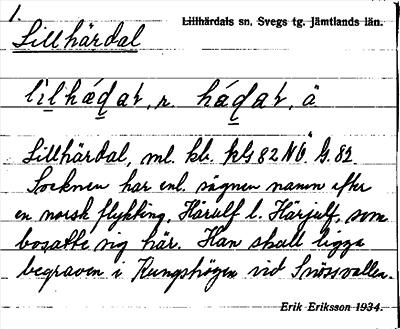 1.
Lillhärdals sn. Svegs tg. Jämtlands län.
Lillhärdal
Lillhärdal, ml. kb. kG82NÖ. G.82
Socknen har enl. sägnen namn efter
en norsk flykting, Härulf l. Härjulf, som
bosatte sig här. Han skall ligga
begraven i Kungshögen vid Snösvallen.
Erik Eriksson 1934.